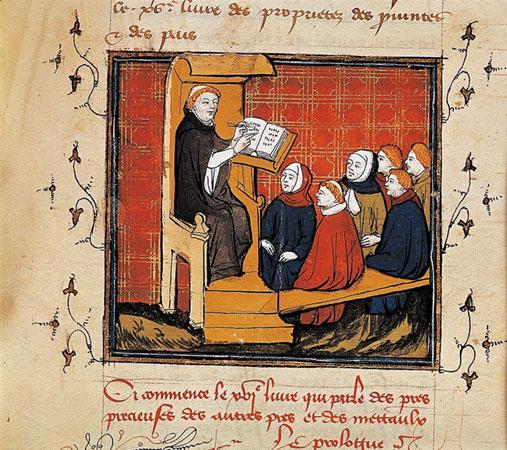 le xv.e livre des proprietez des puinces
& des pais
Ci commence le xvi.e livre qui parle des pres
precieuses des autres pres et des mettaulx
Le prologue